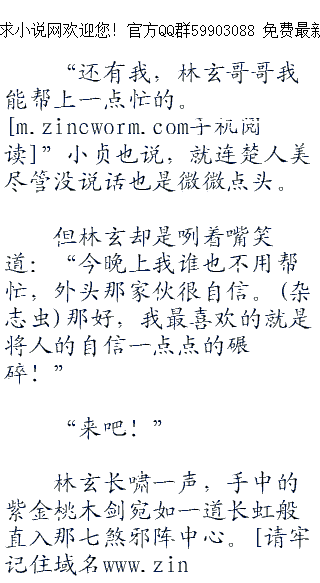 求小说网欢迎您！官方QQ群59903088 免费最新
“还有我，林玄哥哥我
能帮上一点忙的。
[m.zincworm.com手机阅
读]”小贞也说，就连楚人美
尽管没说话也是微微点头。
但林玄却是咧着嘴笑
道：“今晚上我谁也不用帮
忙，外头那家伙很自信。(杂
志虫)那好，我最喜欢的就是
将人的自信一点点的碾
碎！”
“来吧！”
林玄长啸一声，手中的
紫金桃木剑宛如一道长虹般
直入那七煞邪阵中心。[请牢
记住域名www.zin